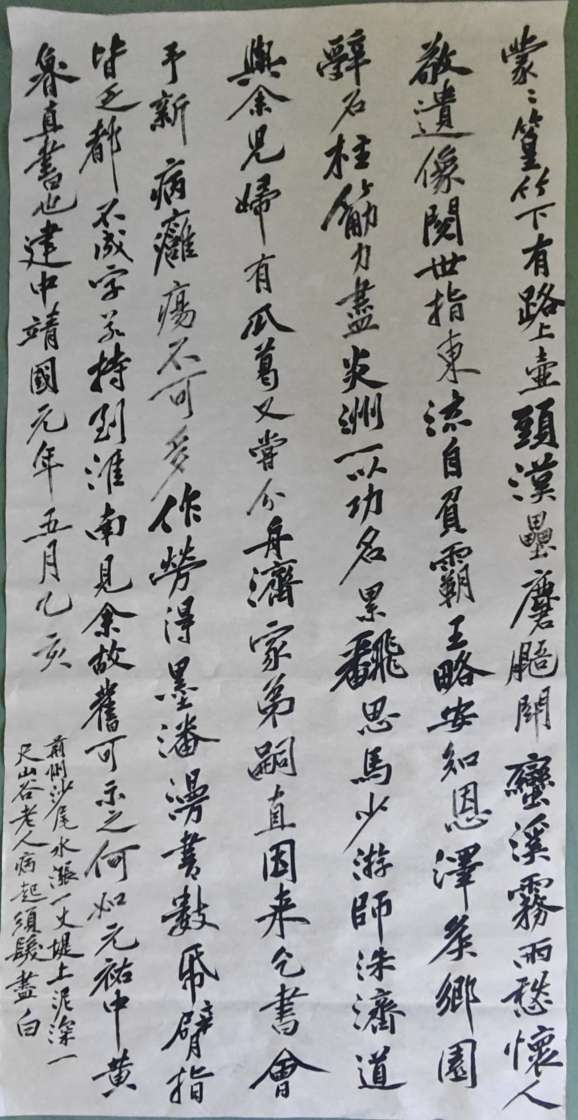 蒙〻篁竹下有路上壺頭漢壘磨鼯鬪蠻溪霧雨愁懷人
敬遺像閱世指東流自負霸王略安知恩澤矦鄉園
辭石柱筋力盡炎洲一以功名累翻思馬少游師洙濟道
與余兒婦有瓜葛又嘗分舟濟家弟嗣直因来乞書會
予新病癰瘍不可多作勞得墨瀋漫書數帋臂指
皆乏都不成字若持到淮南見余故舊可示之何如元祐中黃
魯直書也建中靖國元年五月乙亥
荊州沙尾水漲一丈堤上泥深一
尺山谷老人病起須髮盡白